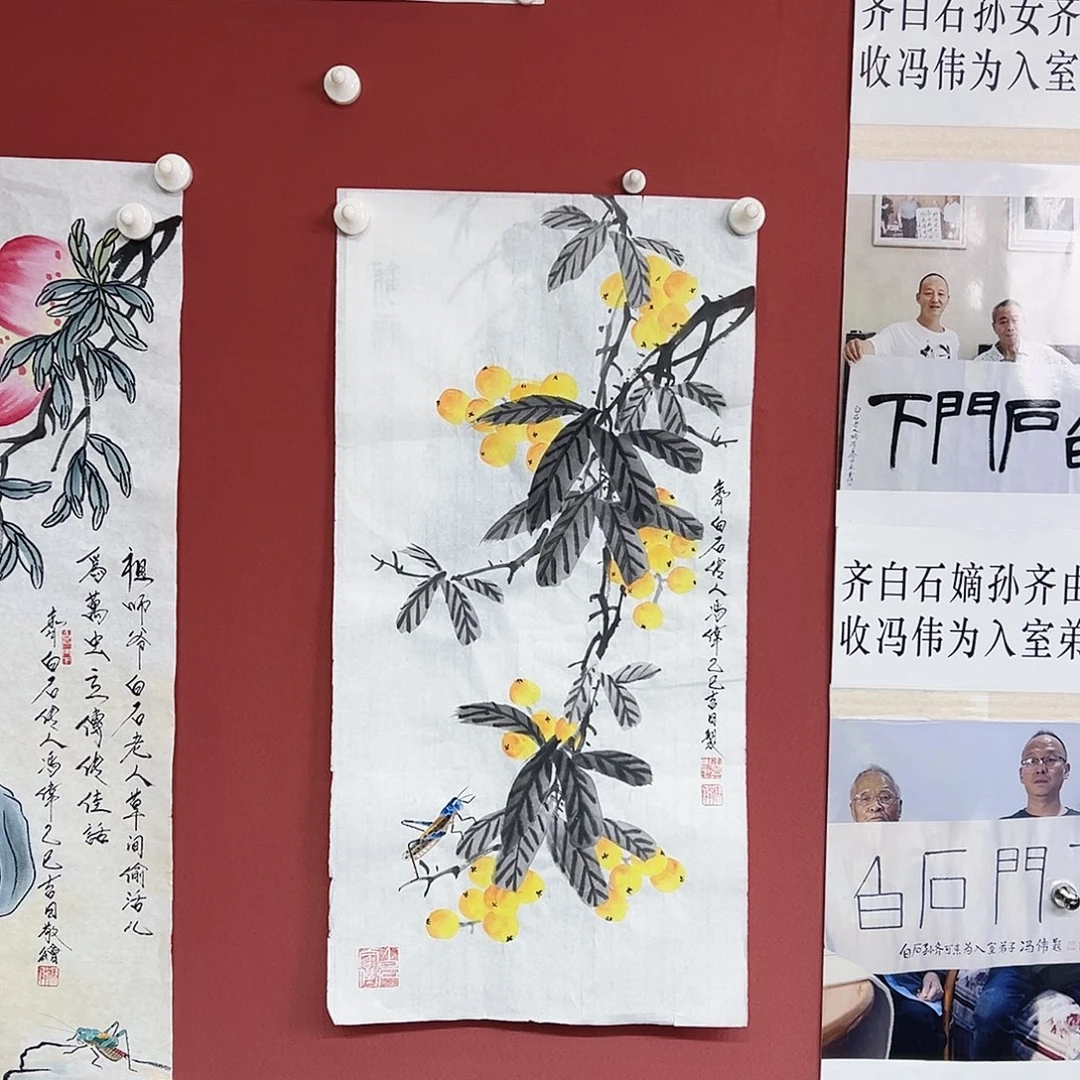 祖师爷白石老人草间偷活几
为万虫立传传佳话
齐白石传人冯伟乙巳吉日敬绘
齊白石传人冯偉乙巳吉日製
齐白石孙女齐
收冯伟为入室
下門石白
齐白石嫡孙齐由
收冯伟为入室弟
白石門下
白石孙齐可来为入室弟子 冯伟题